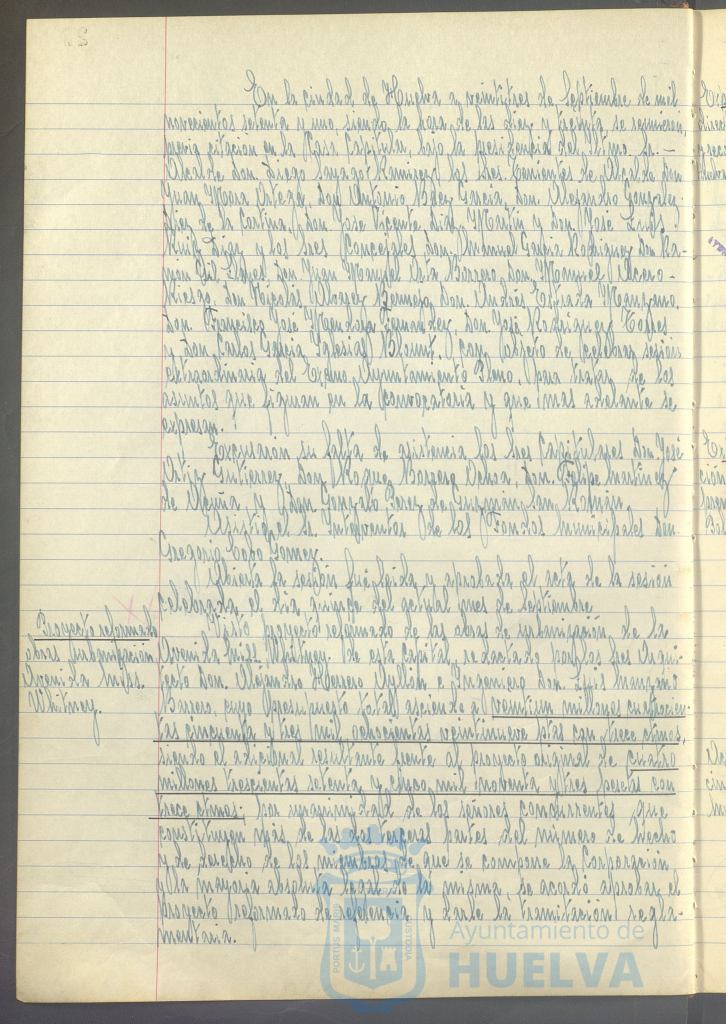 En la ciudad de Huelva a veintitres de Septiembre de mil
novecientos setenta y uno, siendo la hora de las diez y treinta se reunieron,
previa citación en la Casa Capitular, bajo la presidencia del Iltmo. Sr.-
Alcalde Don Diego Sayago Ramirez, los Sres. Tenientes de Alcalde Don
Juan Mora Ortega, Don Antonio Baez Garcia, Don Alejandro Gonzalez
Diez de la Cortina, Don Jose Vicente Diaz Martin y Don José Luis
Ruiz Diaz y los Sres Concejales Don Manuel Garcia Rodriguez, Don Ra-
mon Gil Lopez, Don Juan Manuel Borrero, Don Manuel
Riesgo, Don Nicolás Alvarez Don Andrés Estrada Manzano,
Don Francisco José Mendoza Fernandez, Don José Rodriguez Torres
y Don Carlos Garcia Iglesias con objeto de celebrar sesión
extraordinaria del Excmo. Ayuntamiento Pleno, para tratar de los
asuntos que figuran en la convocatoria y que mas adelante se
expresan.
Excusaron su falta de asistencia los Sres Capitulares Don José
Ortiz Gutierrez, Don Roque Barrera Ochoa, Don Felipe Martinez
de Acuña y Don Gonzalo Perez de Guzmán San Román.
Asistió el Sr. Interventor de los Fondos Municipales Don
Gregorio Cobo Gomez.
Abierta la sesión fué leida y aprobada el acta de la sesión
celebrada el dia quince del actual mes de Septiembre.
Proyecto reformado
obras urbanización
Avenida Miss.
Whitney.
Visto proyecto reformado de las obras de urbanización de la
Avenida Miss Whitney de esta Capital, redactado por los Sres Arqui-
tecto Don Alejandro Herrero Ayllón e Ingeniero Don Luis Manzano
cuyo Presupuesto total asciende a veintiun millones cuatrocien-
tas cincuenta y tres mil, ochocientas veintinueve ptas con trece ctmos,
siendo el adicional resultante frente al proyecto original de cuatro
millones trescientas setenta y cinco mil noventa y tres pesetas con
trece ctmos: por unanimidad de los señores concurrentes que
constituyen más de las dos terceras partes del número de hecho
y de derecho de los miembros de que se compone la Corporación
y la mayoria absoluta legal de la misma, se acordó aprobar el
proyecto reformado de referencia y darle la tramitación regla-
mentaria.
PORTUS MARIS
CUSTODIA
Ayuntamiento de
HUELVA